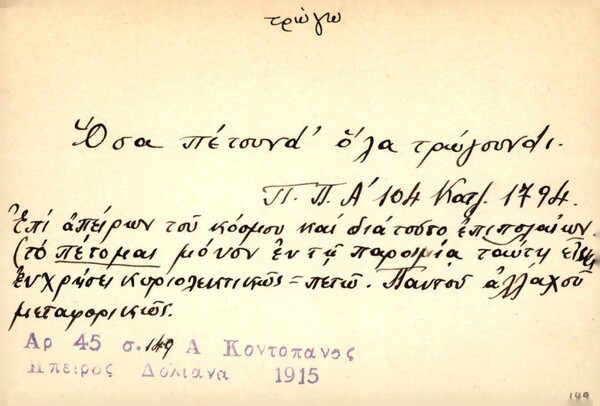 τρώγω
Ὅσα πέτουνα' ὅλα τρώγουνdι.
Π. Π. Α' 104 Κατζ. 1794.
Ἐπί ἀπείρων τοῦ κόσμου καί διά τοῦτο ἐπιπολαίων
(τό πέτομαι μόνον ἐν τῇ παροιμίᾳ ταύτῃ εἶναι
ἐν χρήσει κυριολεκτικῶς = πετῶ. Παντοῦ ἀλλαχοῦ
μεταφορικῶς.
Αρ 45 σ. 149 Α Κοντοπανος
Ηπειρος Δολιανα 1915
149